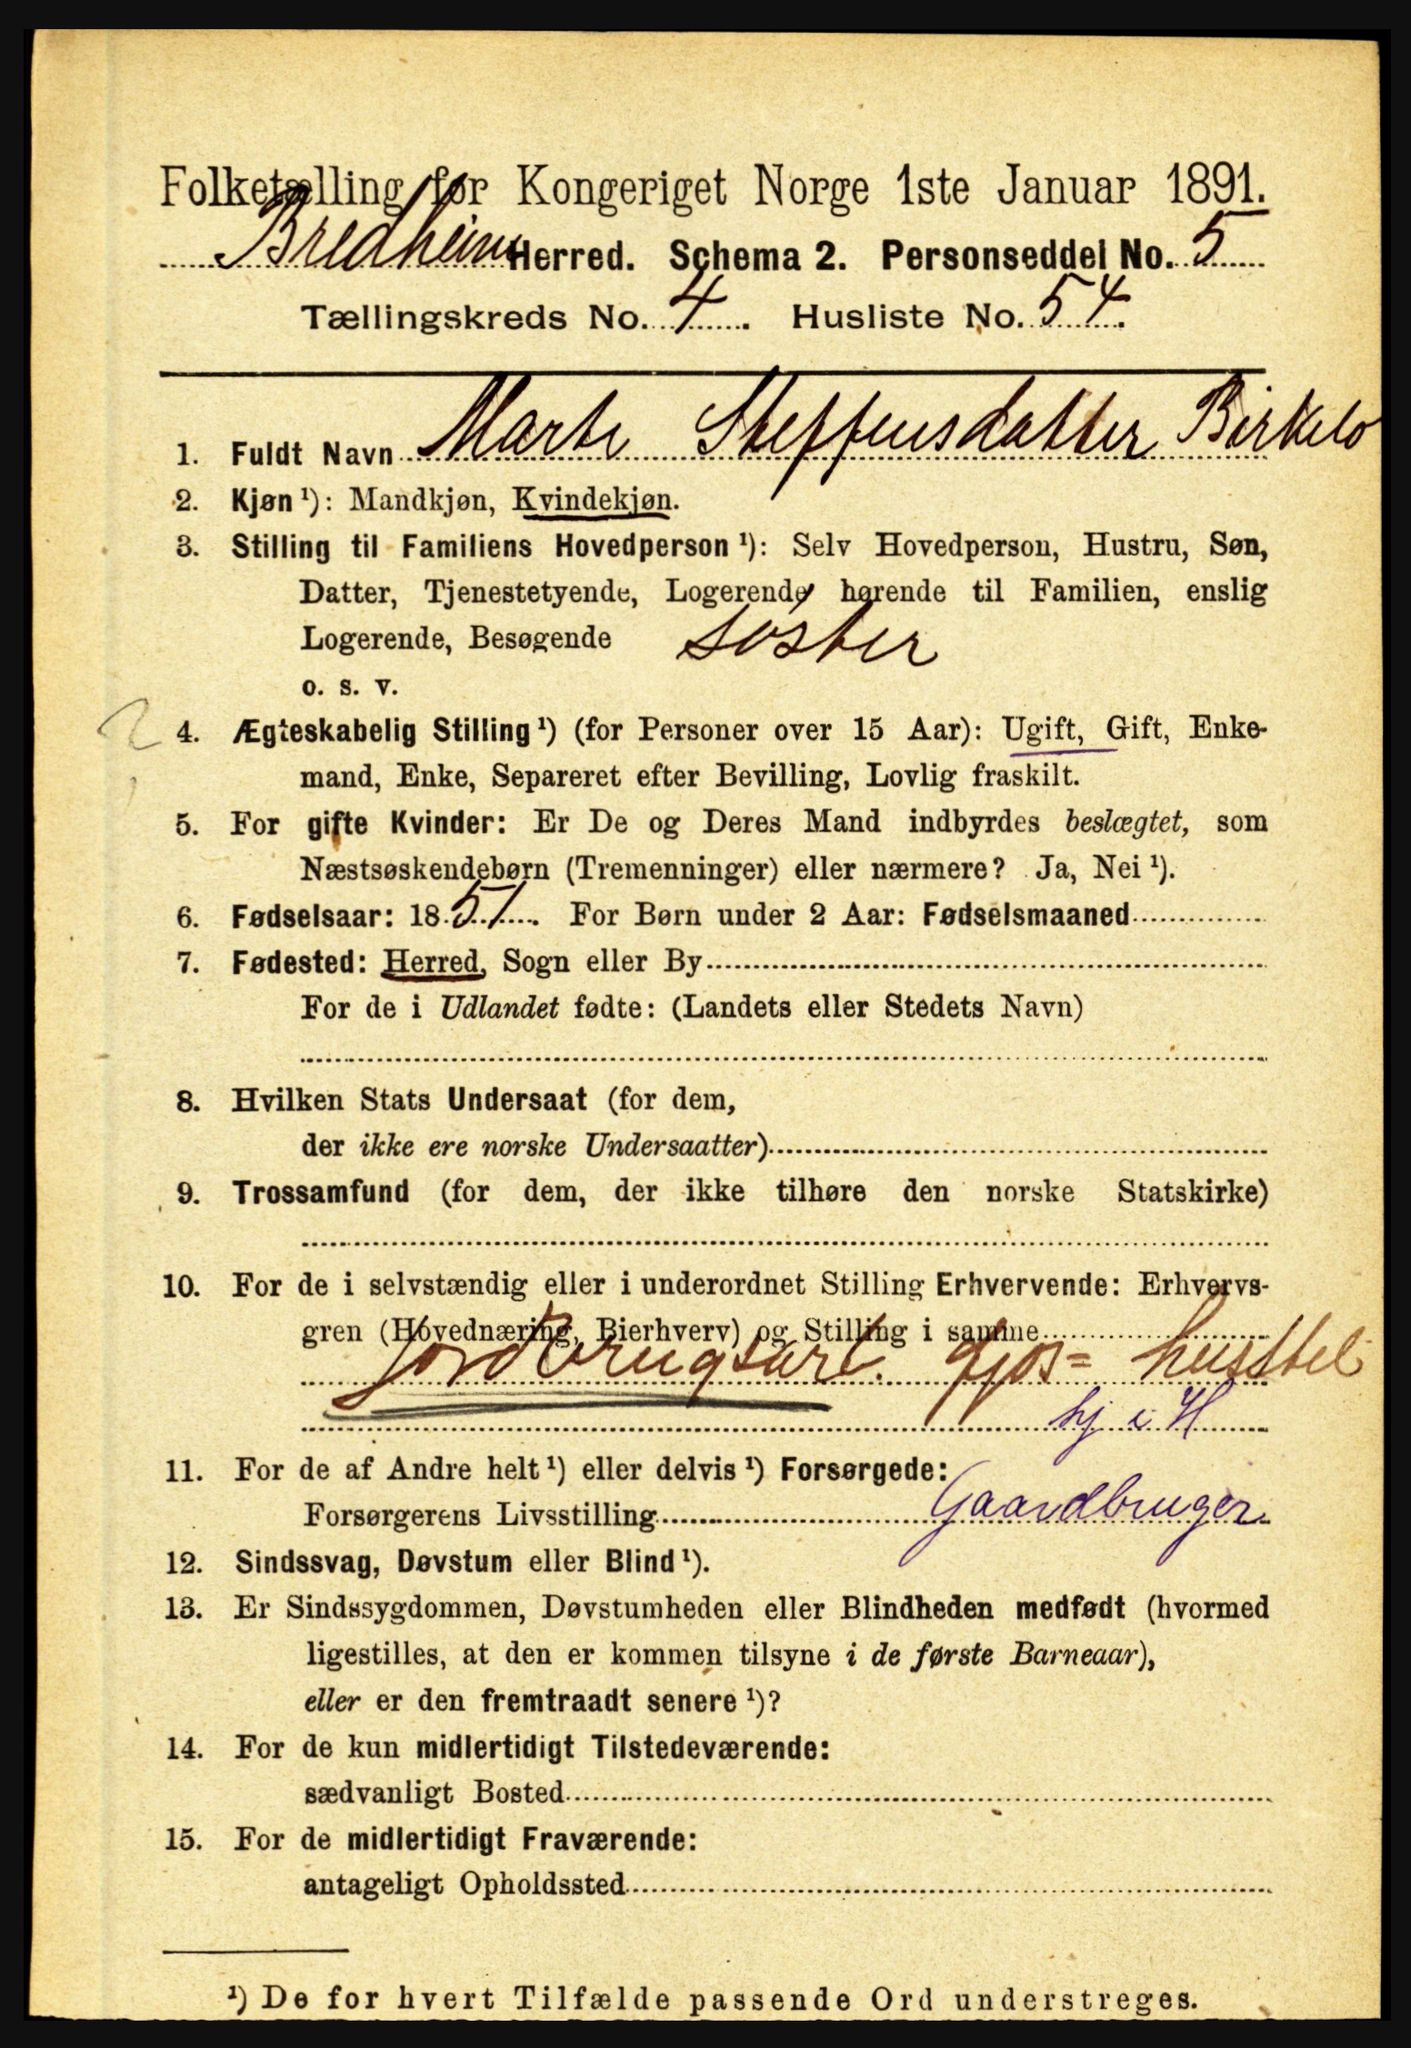 Folketælling for Kongeriget Norge 1ste Januar 1891.
Bredheim Herred. Schema 2. Personseddel No. 5
Tællingskreds No. 4. Husliste No. 54.
1. Fuldt Navn Marte Steffensdatter Birkelo
2. Kjøn ¹): Mandkjøn, Kvindekjøn.
3. Stilling til Familiens Hovedperson ¹): Selv Hovedperson, Hustru, Søn,
Datter, Tjenestetyende, Logerende hørende til Familien, enslig
Logerende, Besøgende Søster
o. s. v.
2
4. Ægteskabelig Stilling ¹) (for Personer over 15 Aar): Ugift, Gift, Enke-
mand, Enke, Separeret efter Bevilling, Lovlig fraskilt.
5. For gifte Kvinder: Er De og Deres Mand indbyrdes beslægtet, som
Næstsøskendebørn (Tremenninger) eller nærmere? Ja, Nei ¹).
6. Fødselsaar: 1851. For Børn under 2 Aar: Fødselsmaaned
7. Fødested: Herred, Sogn eller By
For de i Udlandet fødte: (Landets eller Stedets Navn)
8. Hvilken Stats Undersaat (for dem,
der ikke ere norske Undersaatter)
9. Trossamfund (for dem, der ikke tilhøre den norske Statskirke)
10. For de i selvstændig eller i underordnet Stilling Erhvervende: Erhvervs-
gren (Hovednæring, Bierhverv) og Stilling i samme
Jordbrugsarb. fjøs= husstel
hj i H
11. For de af Andre helt ¹) eller delvis ¹) Forsørgede:
Forsørgerens Livsstilling Gaardbruger
12. Sindssvag, Døvstum eller Blind ¹).
13. Er Sindssygdommen, Døvstumheden eller Blindheden medfødt (hvormed
ligestilles, at den er kommen tilsyne i de første Barneaar),
eller er den fremtraadt senere ¹)?
14. For de kun midlertidigt Tilstedeværende:
sædvanligt Bosted
15. For de midlertidigt Fraværende:
antageligt Opholdssted
¹) De for hvert Tilfælde passende Ord understreges.